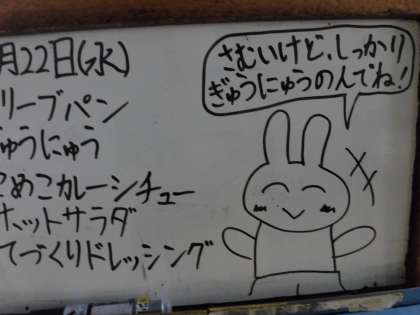 月22日(水)
さむいけど、しっかり
ぎゅうにゅうのんでね!
リーブパン
ぎゅうにゅう
こめこカレーシチュー
ホットサラダ
てづくりドレッシング